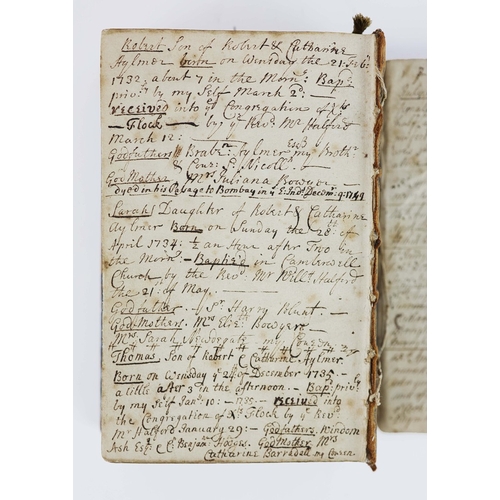 Robert Son of Robert & Catharine
Aylmer born on Wensday the 21: Feb:
1732, about 7 in the Morn: Bap:
priv: by my Self March 2d:
received into ye Congregation of Xts
Flock — by ye Revd Mr Halford
March 12:
Godfathers Brabn: Aylmer Esqr my Broth:
& Couz: G. Nicoll
God Mother Mrs Juliana Bowyer
dyed in his Passage to Bombay in ye E: Inds Decem: 9: 1749
Sarah Daughter of Robert & Catharine
Aylmer Born on Sunday the 28: of
April 1734: ½ an Hour after Two in
the Morn: Baptis'd in Camberwell
Church by the Revd Mr Willm Halford
the 21: of May
Godfather Sr Harry Hunt
God Mothers. Mrs Eliz: Bowyer
Mrs Sarah Newdegate my Couzen
Thomas Son of Robert & Catharine Aylmer
Born on Wensday ye 24th of December 1735
a little after 3 in the afternoon. Bap: priv:
by my Self Jan: 10: received into
the Congregation of Xts Flock by ye Revd
Mr Halford January 29: Godfathers Windom
Ash Esqr & C. Benjan Hodges. God Mother Mrs
Catharine Barksdall my Couzen